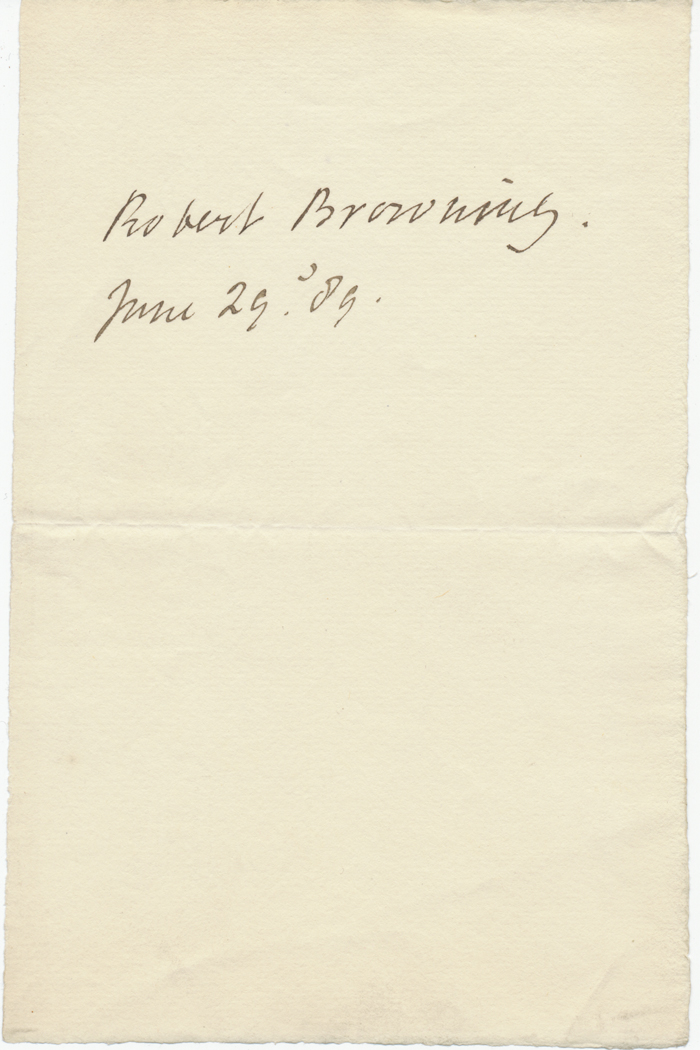 Robert Browning.
June 29. '89.